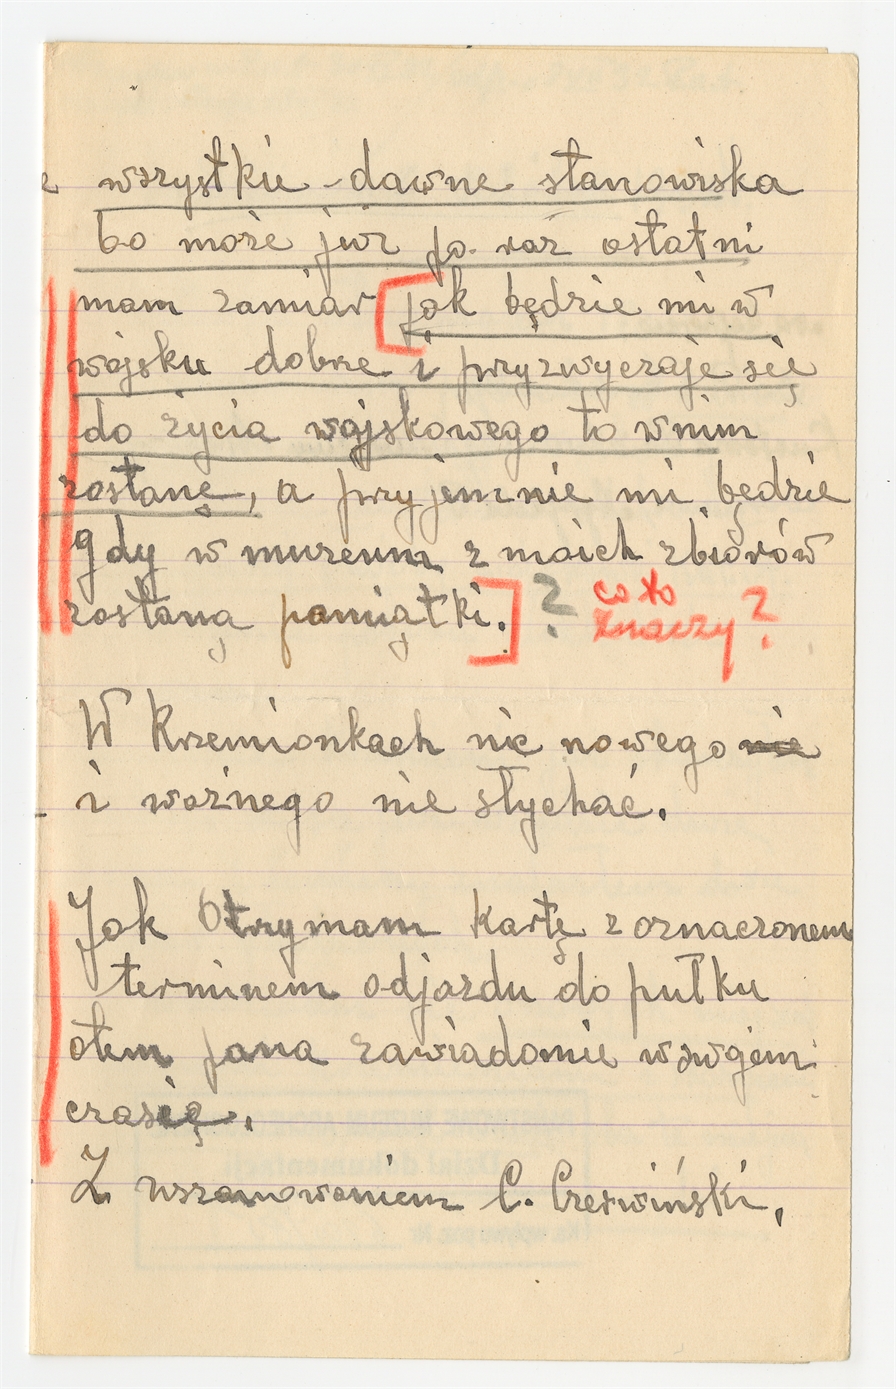 wszystkie dawne stanowiska
bo może już po raz ostatni
mam zamiar [jak będzie mi w
wojsku dobrze i przyzwyczaje się
do życia wojskowego to wnim
zostanę, a przyjemnie mi będzie
gdy w muzeum z moich zbiorów
zostaną pamiątki.] ? co to
znaczy?
W Krzemionkach nic nowego nie
i ważnego nie słychać.
Jak Otrzymam kartę z oznaczonem
terminem odjazdu do pułku
otem pana zawiadomie wswojem
czasie.
Z uszanowaniem C. Czerwiński,